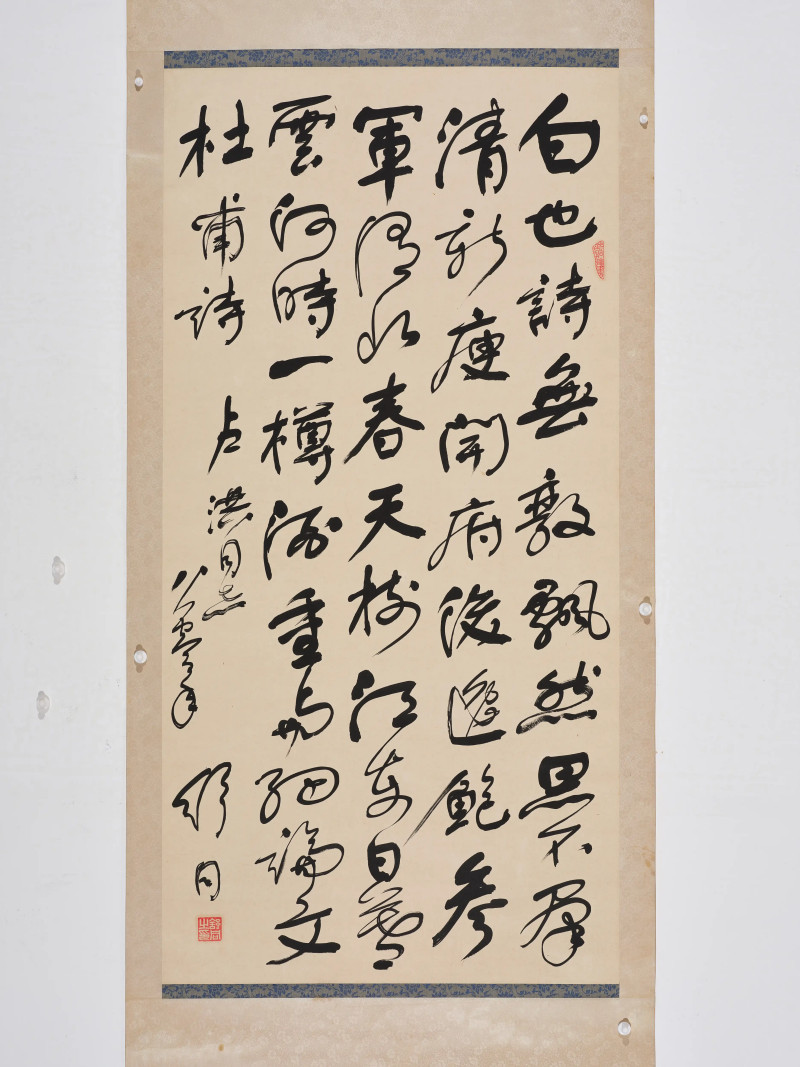 白也詩無敵飄然思不羣
清新庾開府俊逸鮑參
軍渭北春天樹江東日暮
雲何時一樽酒重與細論文
杜甫詩
占洪同志
八零年
舒同